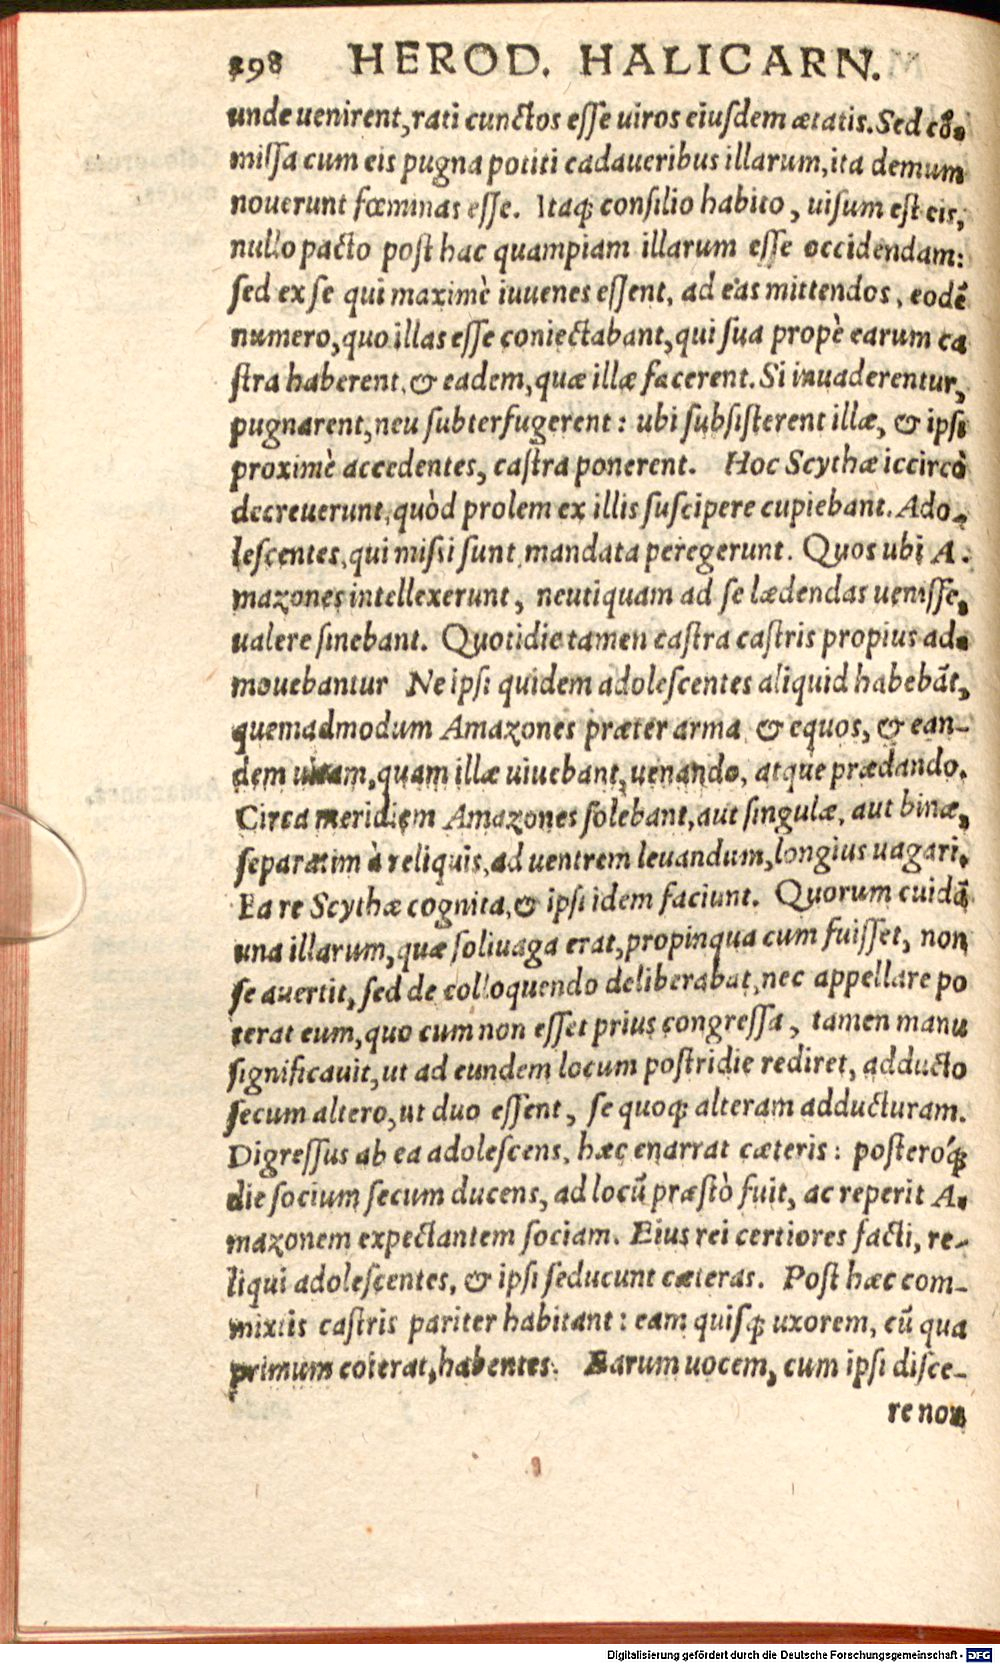 298 HEROD. HALICARN.
unde uenirent, rati cunctos esse uiros eiusdem ætatis. Sed cõ-
missa cum eis pugna potiti cadaueribus illarum, ita demum
nouerunt fœminas esse. Itaq; consilio habito, uisum est eis,
nullo pacto post hac quampiam illarum esse occidendam:
sed ex se qui maximè iuuenes essent, ad eas mittendos, eodẽ
numero, quo illas esse coniectabant, qui sua propè earum ca
stra haberent, & eadem, quæ illæ facerent. Si inuaderentur,
pugnarent, neu subterfugerent: ubi subsisterent illæ, & ipsi
proximè accedentes, castra ponerent. Hoc Scythæ iccircò
decreuerunt, quòd prolem ex illis suscipere cupiebant. Ado-
lescentes, qui missi sunt, mandata peregerunt. Quos ubi A-
mazones intellexerunt, neutiquam ad se lædendas uenisse,
ualere sinebant. Quotidie tamen castra castris propius ad-
mouebantur Ne ipsi quidem adolescentes aliquid habebãt,
quemadmodum Amazones præter arma & equos, & ean-
dem uitam, quam illæ uiuebant, uenando, atque prædando.
Circa meridiem Amazones solebant, aut singulæ, aut binæ,
separatim à reliquis, ad uentrem leuandum, longius uagari.
Ea re Scythæ cognita, & ipsi idem faciunt. Quorum cuidã
una illarum, quæ soliuaga erat, propinqua cum fuisset, non
se auertit, sed de colloquendo deliberabat, nec appellare po
terat eum, quo cum non esset prius congressa, tamen manu
significauit, ut ad eundem locum postridie rediret, adducto
secum altero, ut duo essent, se quoq; alteram adducturam.
Digressus ab ea adolescens, hæc enarrat cæteris: posteróq;
die socium secum ducens, ad locũ præstò fuit, ac reperit A-
mazonem expectantem sociam. Eius rei certiores facti, re-
liqui adolescentes, & ipsi seducunt cæteras. Post hæc com-
mixtis castris pariter habitant: eam quisq; uxorem, cũ qua
primum coierat, habentes. Earum uocem, cum ipsi disce-
re non
Digitalisierung gefördert durch die Deutsche Forschungsgemeinschaft - DFG